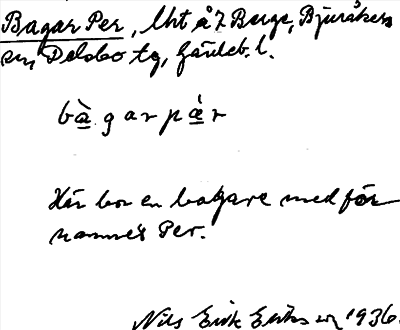 Bagar Per, lht å 7 Berge, Bjuråkers
sn, Delsbo tg, Gävleb. l.
bàgarpär
Här bor en bagare med för
namnet Per.
Nils Erik Eriksson 1936.